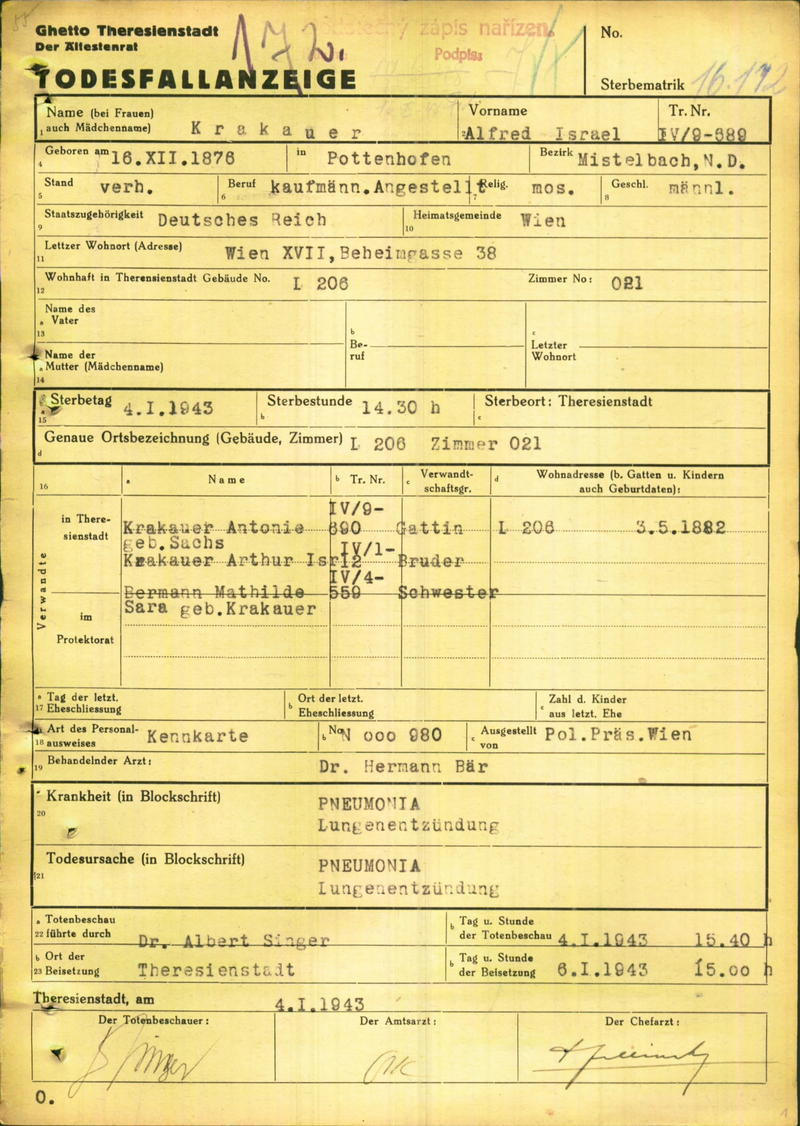 Ghetto Theresienstadt
Der Ältestenrat
TODESFALLANZEIGE
172.
zápis nařízen
Podpis:
No.
Sterbematrik 16.172
Name (bei Frauen)
1 auch Mädchenname) Krakauer
Vorname
2 Alfred Israel
Tr. Nr.
IV/9-689
4 Geboren am 16.XII.1876 in Pottenhofen Bezirk Mistelbach,N.D.
5 Stand verh. 6 Beruf kaufmänn.Angestellt 7 Relig. mos. 8 Geschl. männl.
9 Staatszugehörigkeit Deutsches Reich 10 Heimatsgemeinde Wien
11 Lettzer Wohnort (Adresse) Wien XVII,Beheimgasse 38
12 Wohnhaft in Theresienstadt Gebäude No. L 206 Zimmer No: 021
Name des
a Vater
13
Name der
a Mutter (Mädchenname)
14
b
Be-
ruf
c
Letzter
Wohnort
15 Sterbetag 4.I.1943 b Sterbestunde 14.30 h c Sterbeort: Theresienstadt
d Genaue Ortsbezeichnung (Gebäude, Zimmer) L 206 Zimmer 021
16 a Name b Tr. Nr. c Verwandt-
schaftsgr. d Wohnadresse (b. Gatten u. Kindern
auch Geburtdaten):
Verwandte
in There-
sienstadt
im
Protektorat
IV/9-
Krakauer Antonie 690 Gattin L 206 3.5.1882
geb.Sachs IV/1-
Krakauer Arthur Isr12 Bruder
IV/4-
Bermann Mathilde 559 Schwester
Sara geb.Krakauer
a Tag der letzt.
17 Eheschliessung
b Ort der letzt.
Eheschliessung
c Zahl d. Kinder
aus letzt. Ehe
a Art des Personal-
18 ausweises Kennkarte b No N 000 980 c Ausgestellt
von Pol.Präs.Wien
19 Behandelnder Arzt: Dr. Hermann Bär
Krankheit (in Blockschrift)
20
PNEUMONIA
Lungenentzündung
Todesursache (in Blockschrift)
21
PNEUMONIA
Lungenentzündung
a Totenbeschau
22 führte durch Dr. Albert Singer
b Tag u. Stunde
der Totenbeschau 4.I.1943 15.40 h
b Ort der
23 Beisetzung Theresienstadt
b Tag u. Stunde
der Beisetzung 6.I.1943 15.00 h
Theresienstadt, am 4.I.1943
Der Totenbeschauer:
Der Amtsarzt:
Der Chefarzt:
O.